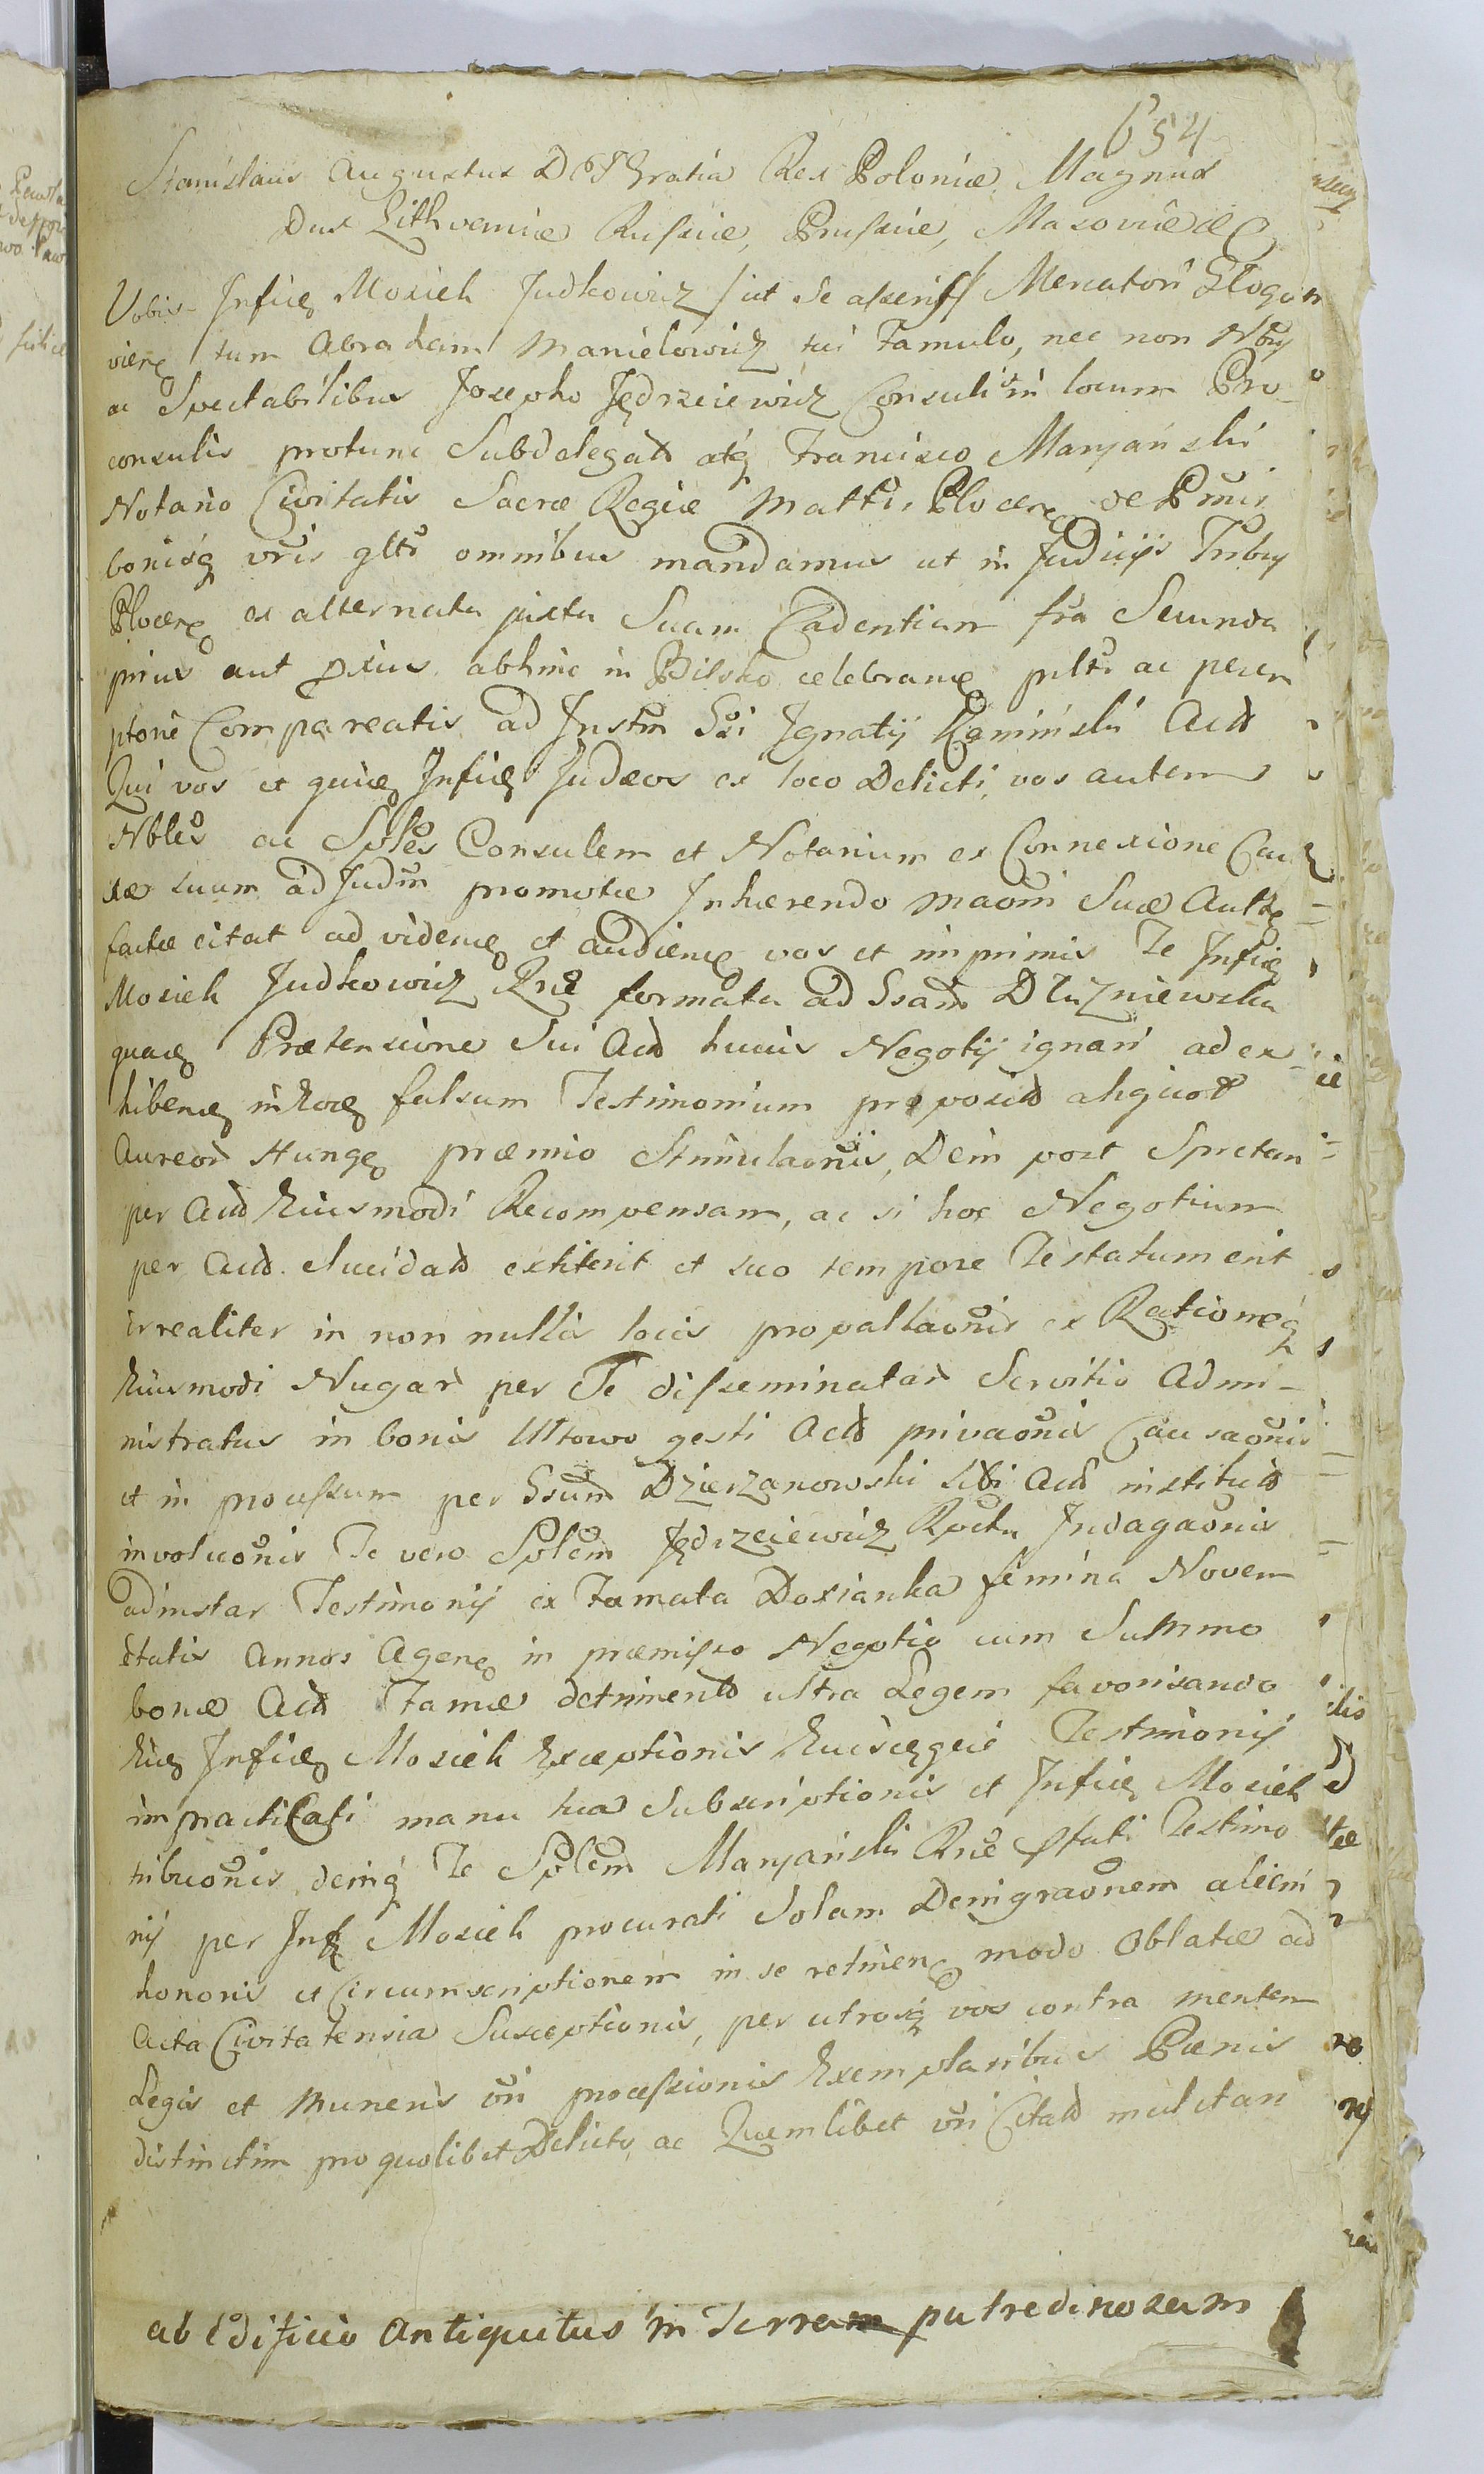 654
Stanislaus Augustus D Gratia Rex Poloniæ Magnus
Dux Lithvaniæ Russiæ, Prussiæ, Masoviæ &c
Vobis Infid Mosiek Judkowicz /ut se asserit/ Mercatori Głogo
vien tum Abraham Manielowicz tui Famulo, nec non Nbus
ac Spectabilibus Josepho Jędrzeiewicz Consuli in locum Pro
consulis protunc Subdelegato atq Francisco Maryański
Notario Civitatis Sacræ Regiæ Mattis Plocen de Pnis
bonisq vris gltr omnibus mandamus ut in Judicijs Tribus
Plocen ex alternata juxta Suam Cadentiam fra Secunda
prius aut pxius abhinc in Bilsko celebran pnltr ac perem
ptorie Compareatis ad Instm Gsi Ignatij Kamiński Acto
Qui vos et quid Infid Judæos ex loco Delicti, vos autem
Nbles ac Sples Consulem et Notarium ex Connexione Cau
sæ suum ad Judm promotæ Inhærendo maoni Suæ Auth
factæ citat ad viden et audien vos et imprimis Te Infid
Mosiek Judkowicz Rne formata ad Gsam Dłuzniewska
quad Prætensione Sui Acto huius Negotij ignari ad ex
hiben in hoc falsum Testimonium proposito aliquot
Aureor Hung præmio Stimulaonis, Dein post Spretam
per Acto Eiusmodi Recompensam, ac si hoc Negotium
per Acto elucidato extiterit et suo tempore Testatum erit
irrealiter in non nullis locis propallaonis ex Rationeq
Eiusmodi Nugar per Te disseminatar Servitio Admi-
nistratus in bonis Utowo gesti Acto privaonis Causaonis
et in processum per Gsum Dzierzanowski sibi Acto instituto
involuonis Te vero Splem Jędrzeiewicz Rptu Indagaonis
adinstar Testimonij ex Famata Doxianka femina Novem
ætatis Annos Agen in præmisso Negotio cum Summo
bonæ Acto Famæ detrimento ultra Legem favorisando
Eid Infid Mosiek Exceptionis Testimonij
impracticati manu tua Subscriptionis et Infid Mosiek
tribuonis, deniq Te Splem Maryański Rne ptati Testimo
nij per Infd Mosiek procurati Solam Denigraonem alieni
honoris et Circumscriptionem in se retinen modo Oblatæ ad
Acta Civitatensia Susceptionis, per utrosq vos contra mentem
Legis et Muneris vri processionis Exemplaribus Pænis
distinctim pro quolibet Delicto, ac Quemlibet vri Citato mulctari
ab Edificio Antiquitus in Terram putredinosam